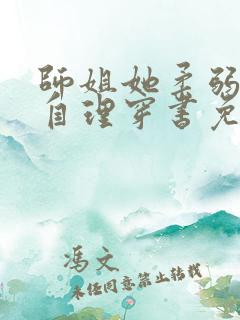 師姐她柔弱
自理穿書免
馮文
未经同意禁止转载